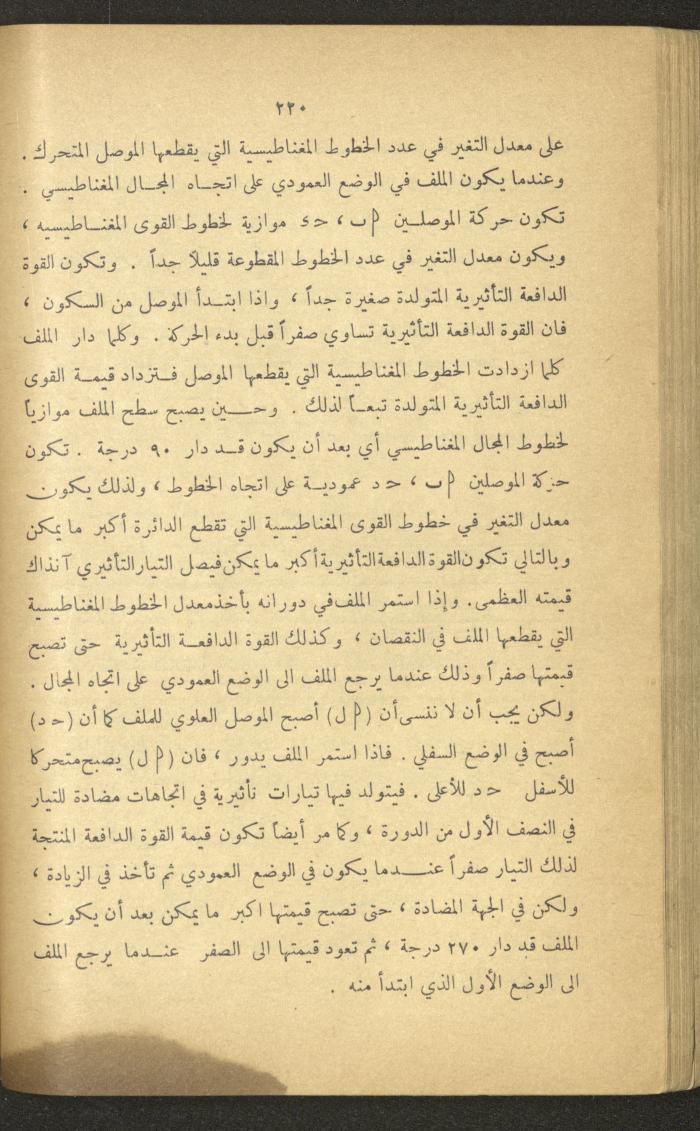 ٢٢٠
على معدل التغير في عدد الخطوط المغناطيسية التي يقطعها الموصل المتحرك .
وعندما يكون الملف في الوضع العمودي على اتجـاه المجـال المغناطيسي .
تكون حركة الموصلـين ا ب ، حـ د موازية لخطوط القوى المغنـاطيسيه ،
ويكون معدل التغير في عدد الخطوط المقطوعة قليلاً جداً . وتكون القوة
الدافعة التأثيرية المتولدة صغيرة جداً ، واذا ابتـدأ الموصل من السكون ،
فان القوة الدافعة التأثيرية تساوي صفراً قبل بدء الحركة . وكلما دار الملف
كلما ازدادت الخطوط المغناطيسية التي يقطعها الموصل فـتزداد قيمـة القوى
الدافعة التأثيرية المتولدة تبعـاً لذلك . وحــين يصبح سطح الملف موازياً
لخطوط المجال المغناطيسي أي بعد أن يكون قـد دار ٩٠ درجة . تكون
حركة الموصلين ا ب ، حـ د عموديـة على اتجاه الخطوط ، ولذلك يكون
معدل التغير في خطوط القوى المغناطيسية التي تقطع الدائرة أكبر ما يمكن
وبالتالي تكون القوة الدافعة التأثيرية أكبر ما يمكن فيصل التيار التأثيري آنذاك
قيمته العظمى . وإذا استمر الملف في دورانه يأخذ معدل الخطوط المغناطيسية
التي يقطعها الملف في النقصان ، وكذلك القوة الدافعـة التأثيرية حتى تصبح
قيمتها صفراً وذلك عندما يرجع الملف الى الوضع العمودي على اتجاه المجال .
ولكن يجب أن لا ننسى أن (ا ل) أصبح الموصل العلوي للملف كما أن (حـ د)
أصبح في الوضع السفلي . فاذا استمر الملف يدور ، فان (ا ل) يصبح متحركا
للأسفل حـ د للأعلى . فيتولد فيها تيارات تأثيرية في اتجاهات مضادة للتيار
في النصف الأول من الدورة ، وكما مر أيضاً تكون قيمة القوة الدافعة المنتجة
لذلك التيار صفراً عنــدما يكون في الوضع العمودي ثم تأخذ في الزيادة ،
ولكن في الجهة المضادة ، حتى تصبح قيمتها اكبر ما يمكن بعد أن يكون
الملف قد دار ٢٧٠ درجة ، ثم تعود قيمتها الى الصفر عنـدما يرجع الملف
الى الوضع الأول الذي ابتدأ منه .